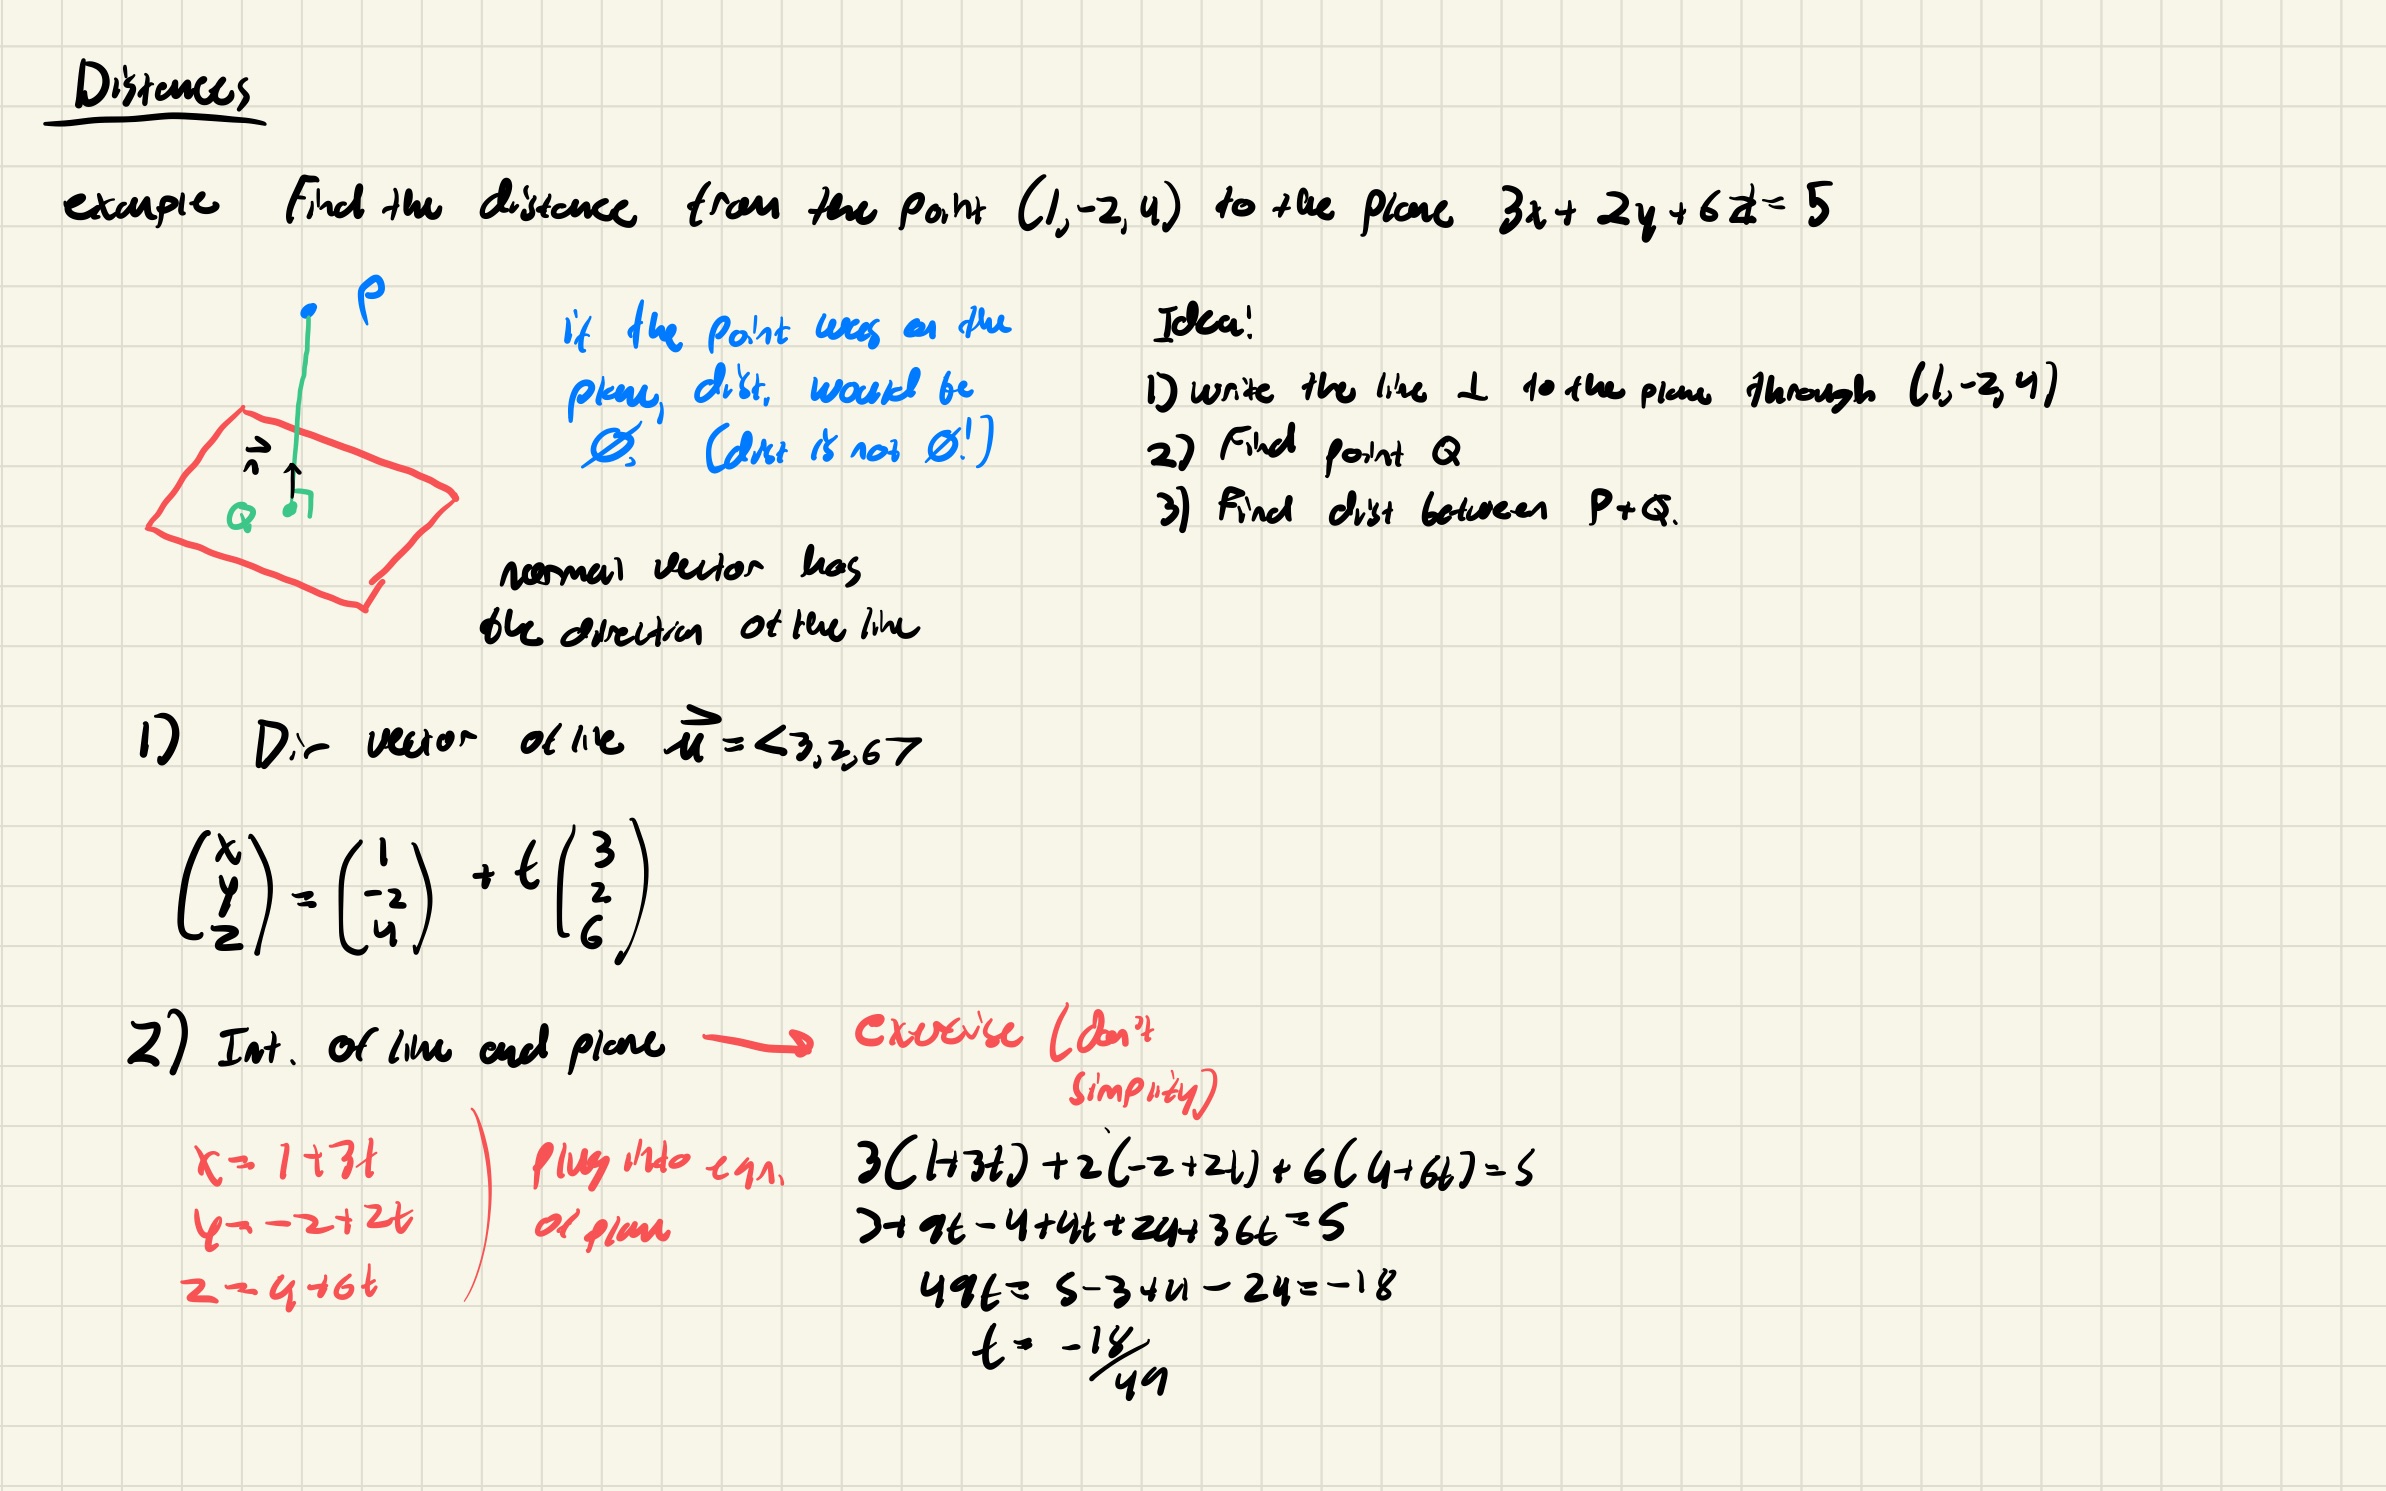 Distances
example Find the distance from the point (1,-2,4) to the plane 3x+2y+6z=5
P
if the point was on the
plane, dist. would be
∅. (dist is not ∅!)
Idea!
1) write the line ⊥ to the plane through (1,-2,4)
2) Find point Q
3) Find dist between P+Q.
n⃗
Q
normal vector has
the direction of the line
1) Dir vector of line u⃗ = <3,2,6>
(x y z) = (1 -2 4) + t (3 2 6)
2) Int. of line and plane → exercise (don't
simplify)
x = 1+3t
y = -2+2t
z = 4+6t
plug into eqn.
of plane
3(1+3t)+2(-2+2t)+6(4+6t)=5
3+9t-4+4t+24+36t=5
49t = 5-3+4-24=-18
t = -18/49